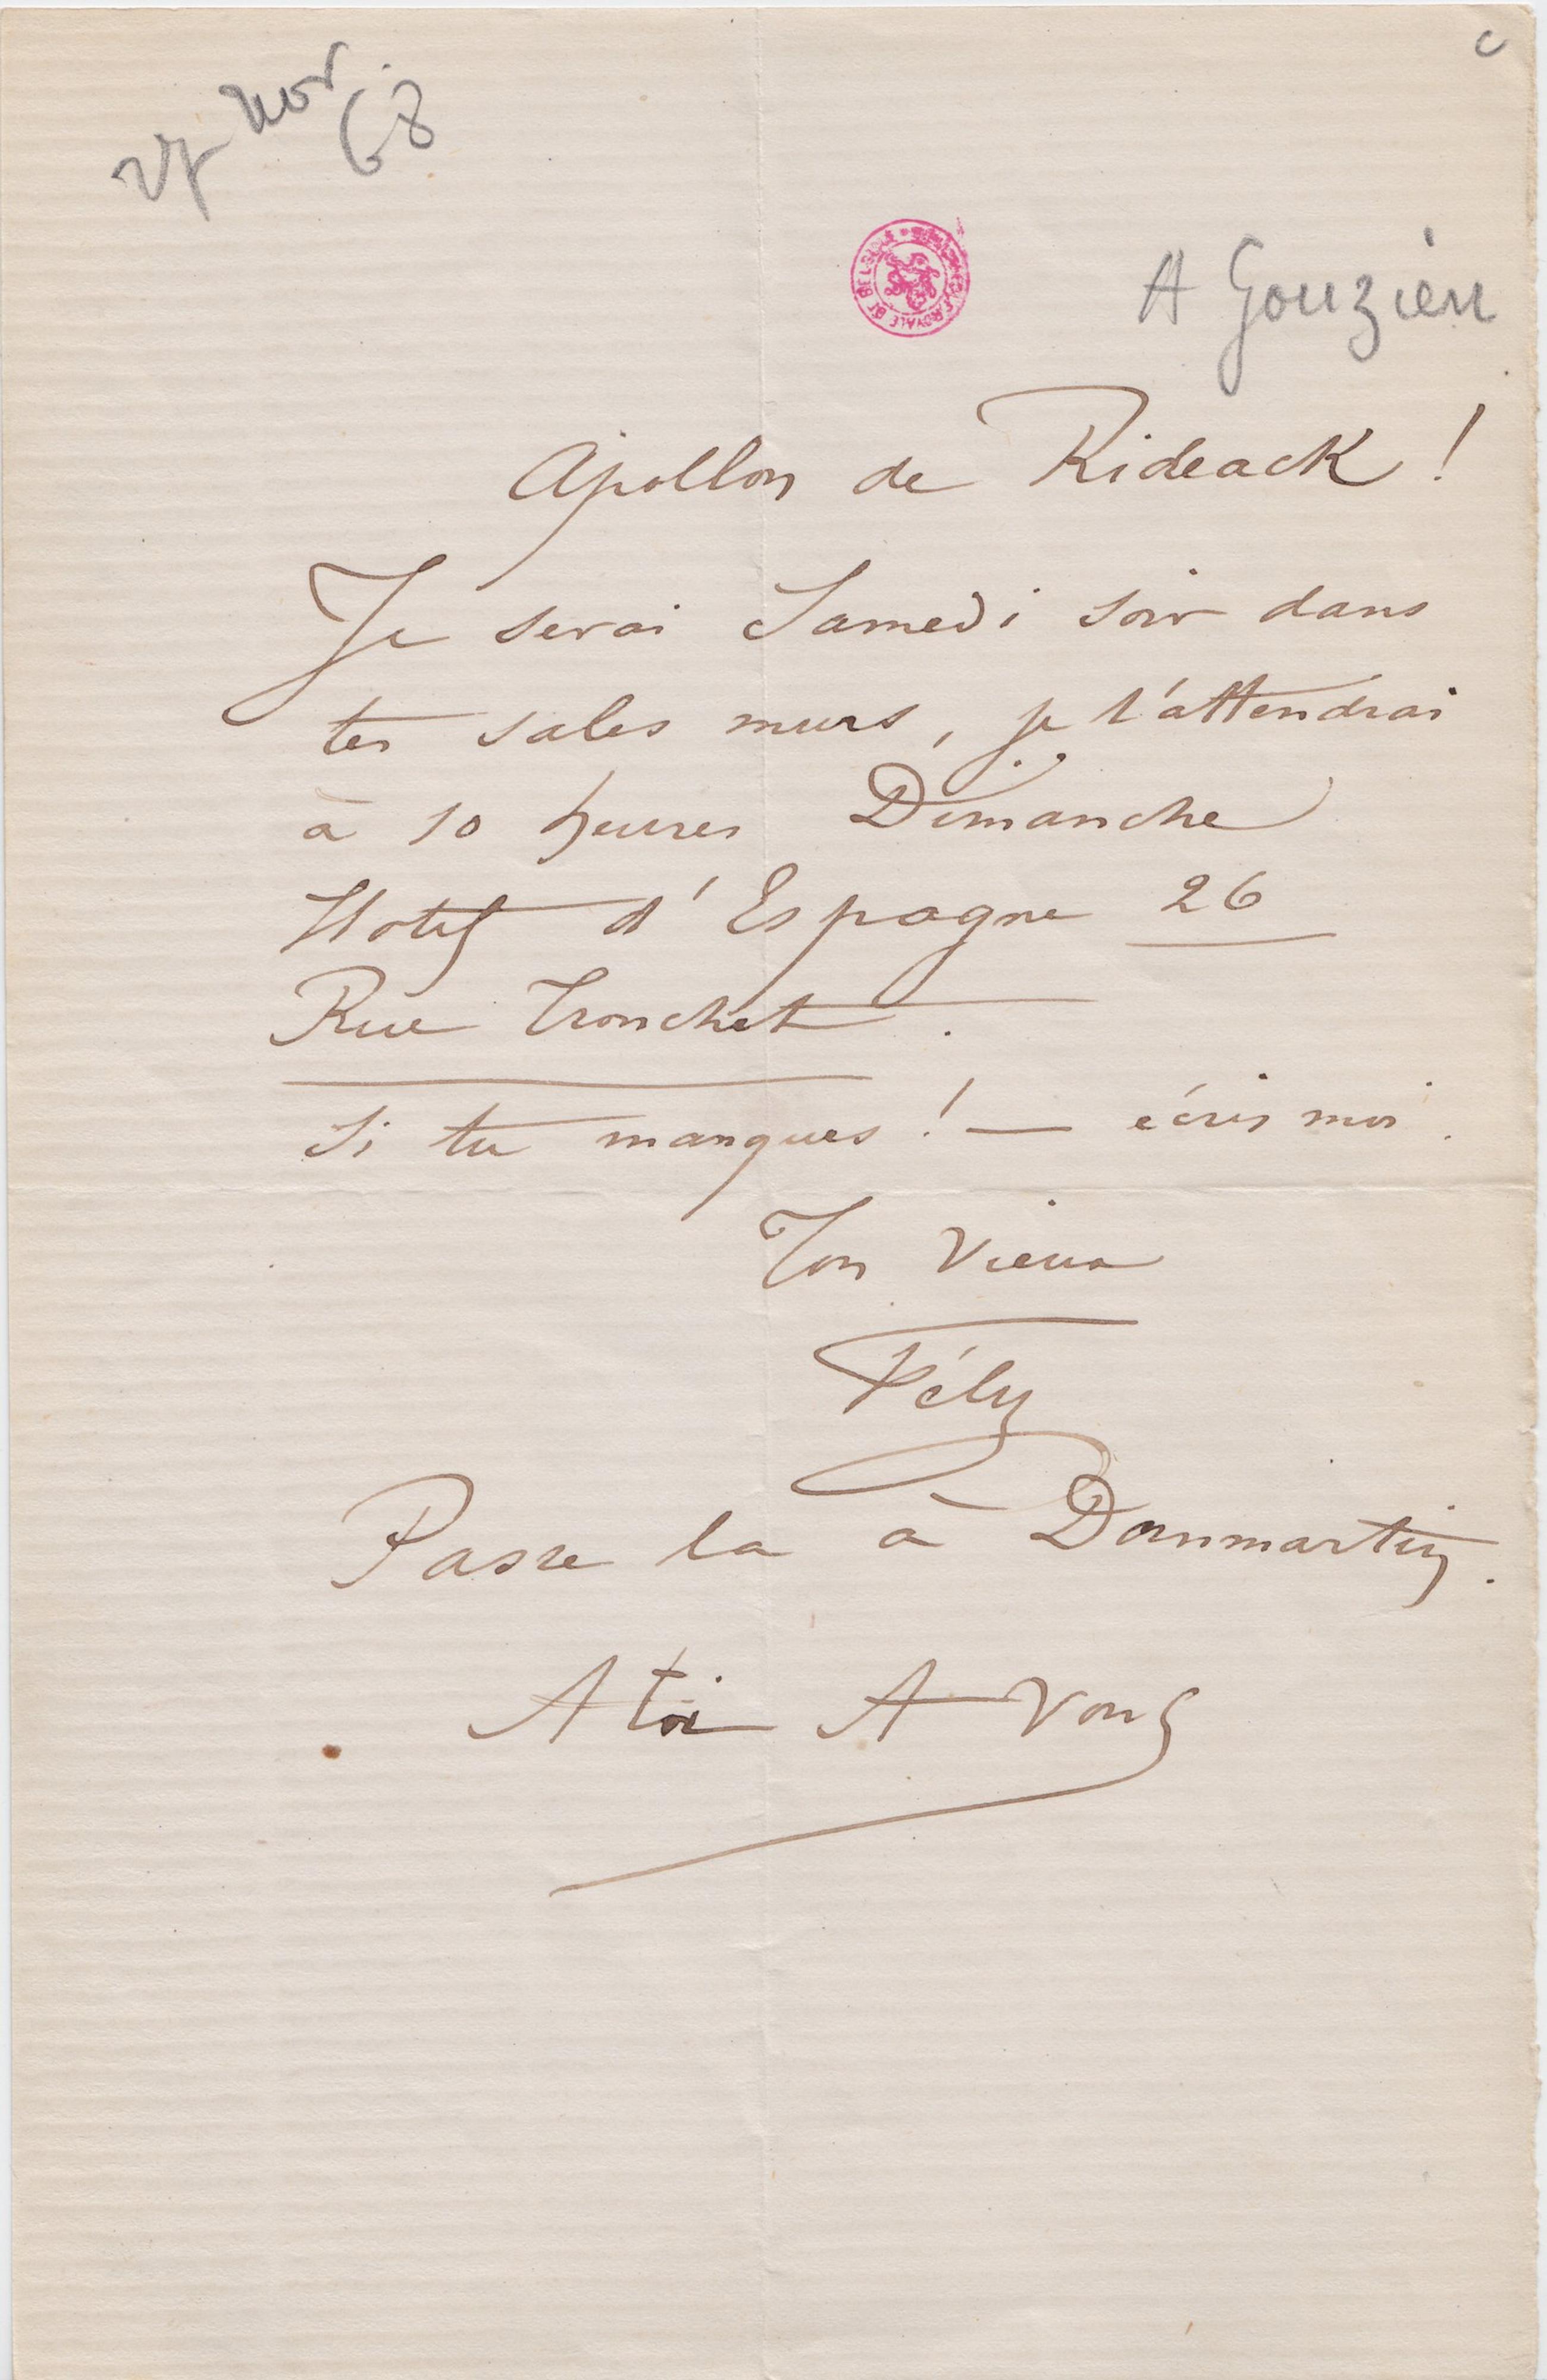 c
27 nov. 68
BIBLIOTHEQUE ROYALE DE BELGIQUE
A Gouzien
Apollon de Rideack !
Je serai Samedi soir dans
tes sales murs, je t'attendrai
à 10 heures Dimanche
Hotel d'Espagne 26
Rue Tronchet .
Si tu manques ! — écris moi .
Ton Vieux
Fély
Passe la à Dommartin .
A toi A Vous